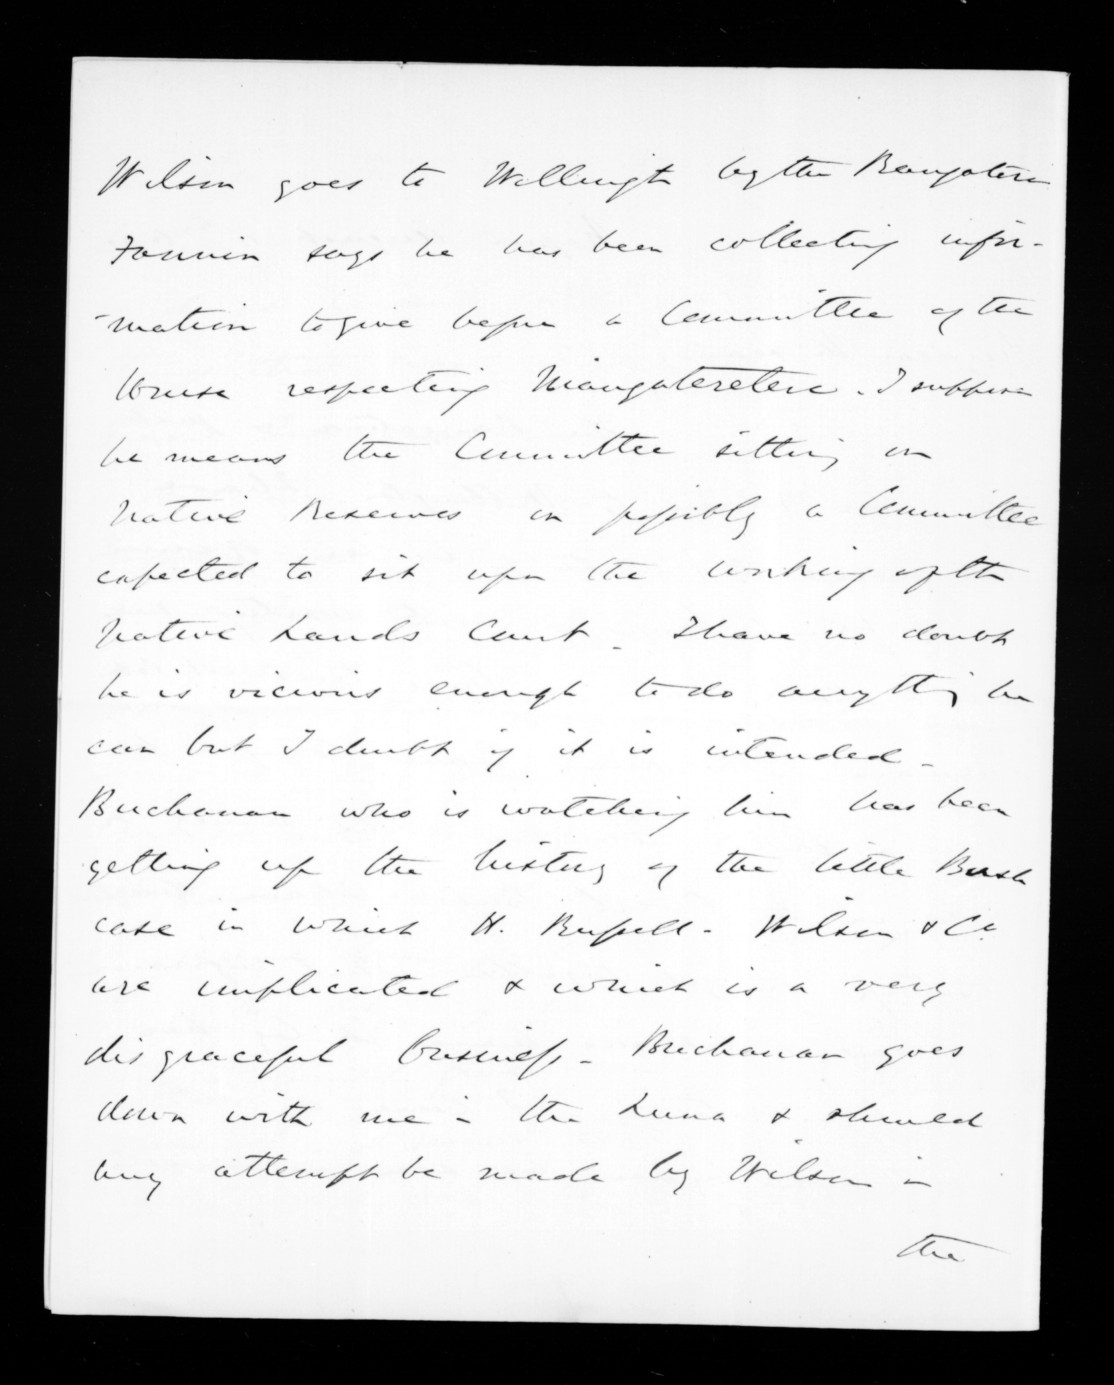 Wilson goes to Wellington by the Rangatira
Fannin says he has been collecting infor-
-mation to give before a Committee of the
House respecting Mangateretere. I suppose
he means the Committee sitting on
Native Reserves or possibly a Committee
expected to sit upon the working of the
Native Lands Court. I have no doubt
he is vicious enough to do anything he
can but I doubt if it is intended.
Buchanan who is watching him has been
getting up the history of the little Bush
case in which H. Russell. Wilson & Co
are implicated & which is a very
disgraceful business. Buchanan goes
down with me in the Luna & should
any attempt be made by Wilson in
the